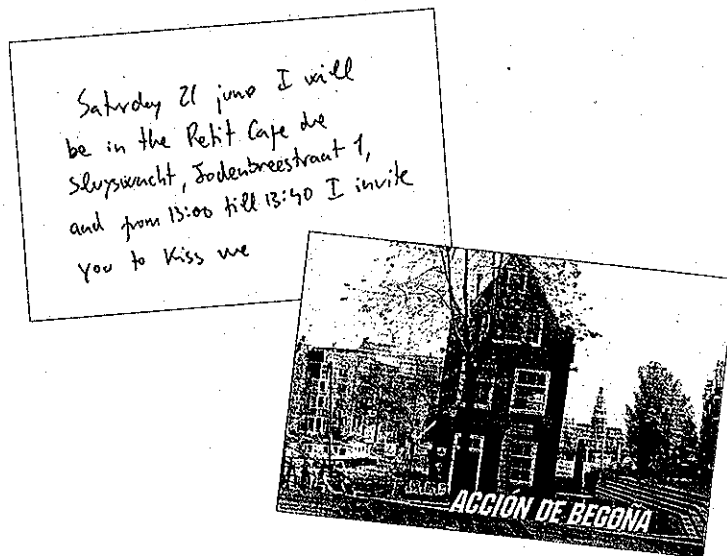 Saturday 21 juno I will
be in the Petit Cafe de
Sluyswacht, Jodenbreestraat 1,
and from 13:00 till 13:40 I invite
you to Kiss me
ACCIÓN DE BEGOÑA